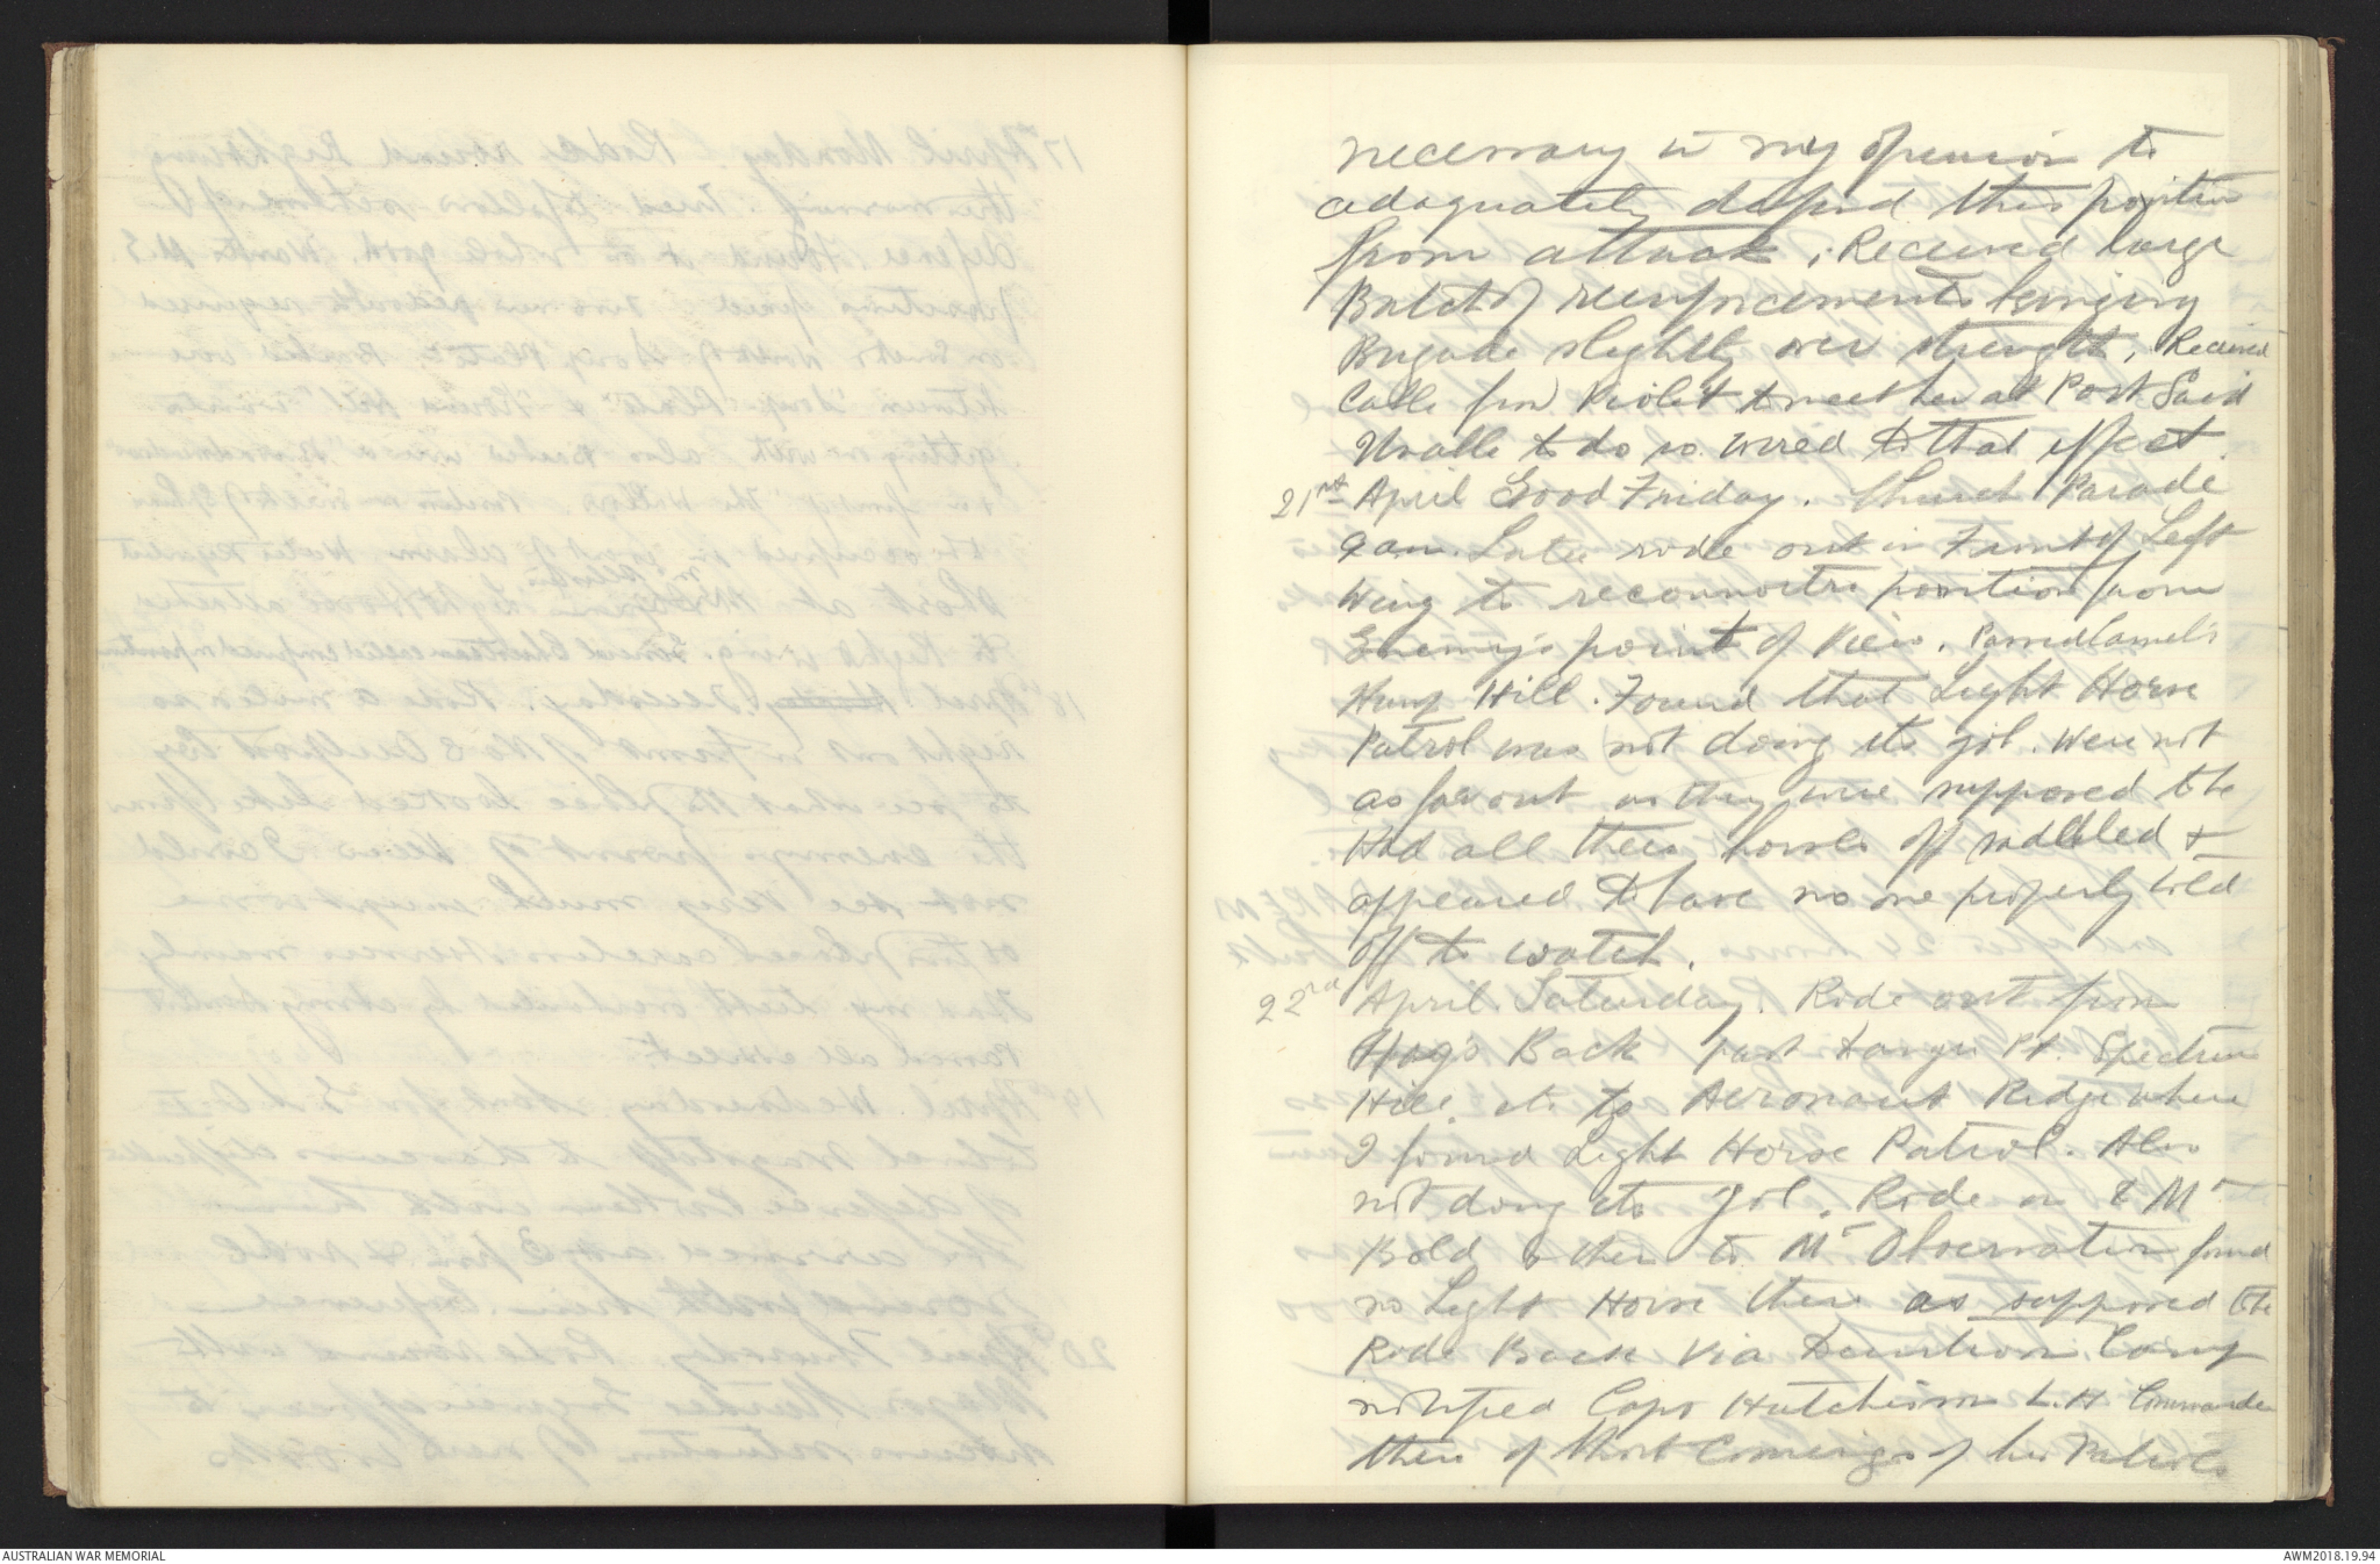 necessary in my opinion to
adaquately defend this position
from attack, Received large
Batch of reinforcements bringing
Brigade slightly over strength, Received
Cable from Violet to meet her at Port Said
Unable to do so wired to that effect.
21st April Good Friday. Church Parade
9 am. Later rode out in Front of Left
Wing to reconnoitre position from
Enemy's point of View. Passed Camel's
Hump Hill. Found that Light Horse
Patrol was not doing its job. Were not
as far out as they were supposed to be
Had all their horses off saddled &
appeared to have no one properly told
off to watch.
22nd April. Saturday. Rode out from
Hog's Back past Danger Pt. Spectrum
Hill, etc to Aeronaut Ridge where
I found Light Horse Patrol. Also
not doing its job. Rode on to Mt
Bold & then to Mt Observation found
no Light Horse there as supposed to be
Rode Back Via Camp
notified Capt Hutchinson L.H Commander
there of Short Comings of his Patrols
AUSTRALIAN WAR MEMORIAL
AWM2018.19.94